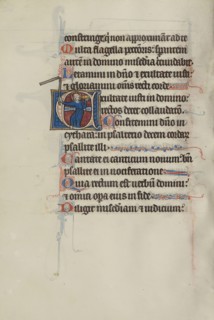 constringe q̄ non approximāt ad te
Multa flagella pctoris: sperantem
autē in domino misćdia circūdabit
Letamini in dn̄o et exultate iusti:
et gloriamini om̄s recti corde
Exultate iusti in domino:
rectos decet collaudatio
Confitemini dn̄o in
cythara: in psalterio decem cordarū
psallite illi
Cantate ei canticum nouum: bn̄
psallite ei in uociferatione
Quia rectum est uerbū domini:
et omnia opa eius in fide
Diligit misćdiam et iudicium: